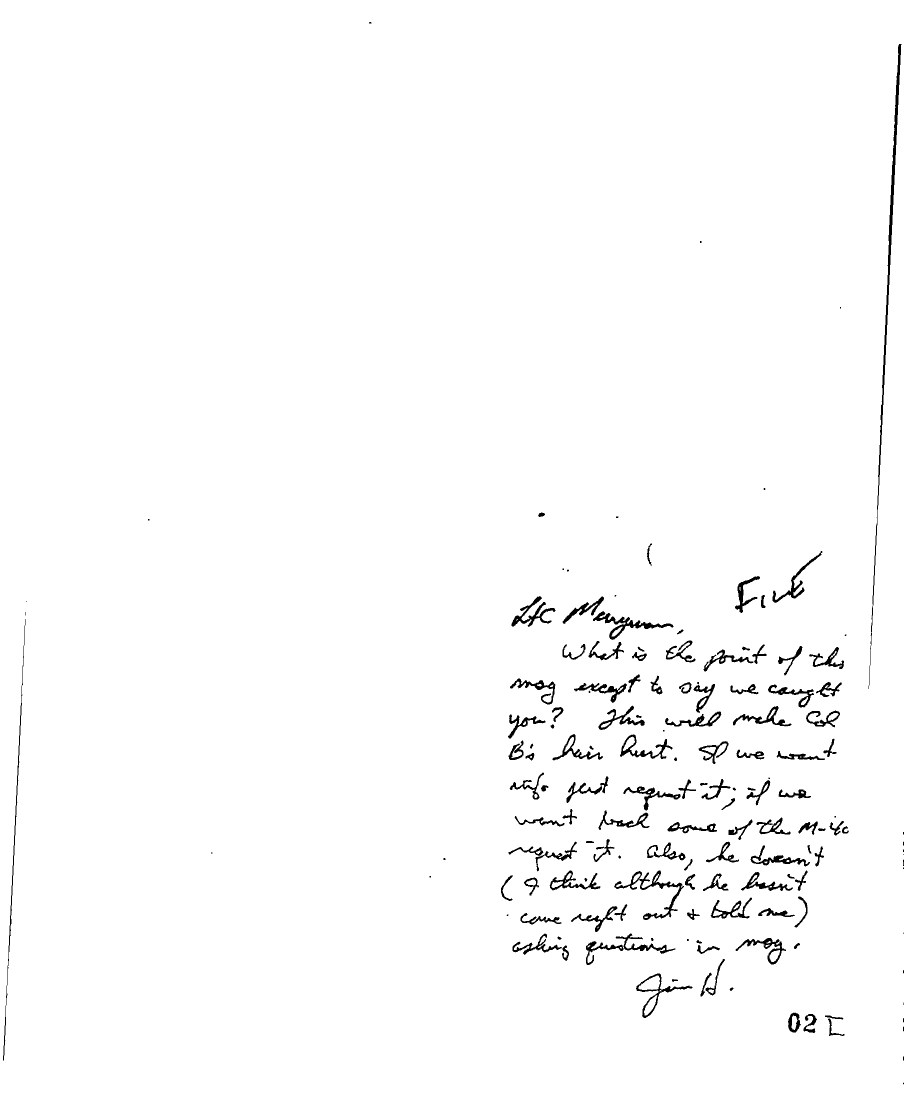 FILE
LtC Merryman,
What is the point of this
msg except to say we caught
you? This will make Col
B's hair hurt. If we want
info just request it; if we
want back some of the M-40
request it. Also, he doesn't
(I think although he hasn't
come right out & told me)
asking questions in msg.
Jim H.
02